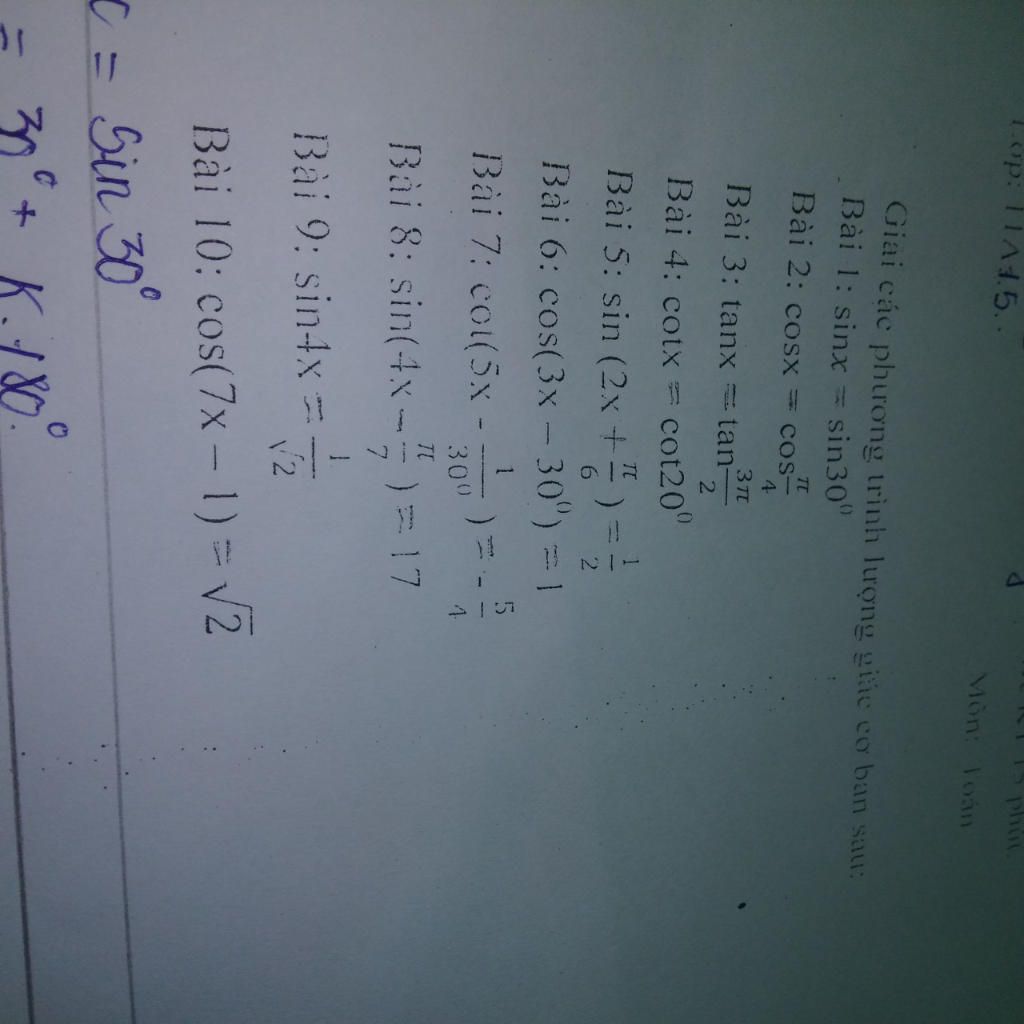 Lớp: 11A15..
Môn: Toán
Giải các phương trình lượng giác cơ bản sau:
Bài 1: sinx = sin30⁰
Bài 2: cosx = cos π/4
Bài 3: tanx = tan 3π/2
Bài 4: cotx = cot20⁰
Bài 5: sin (2x + π/6) = 1/2
Bài 6: cos(3x – 30⁰) = 1
Bài 7: cot(5x - 1/30⁰) = - 5/4
Bài 8: sin(4x – π/7) = 17
Bài 9: sin4x = 1/√2
Bài 10: cos(7x – 1) = √2
= Sin 30°
= 30° + K.180°.